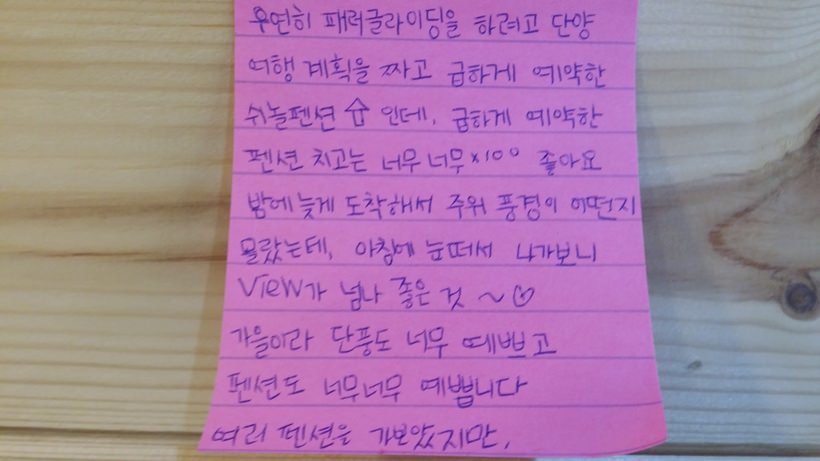 우연히 패러글라이딩을 하려고 단양
여행 계획을 짜고 급하게 예약한
쉬놀펜션 인데, 급하게 예약한
펜션 치고는 너무너무×100 좋아요
밤에 늦게 도착해서 주위 풍경이 어떤지
몰랐는테, 아침에 눈떠서 나가보니
View가 넘나 좋은 것 ~♡
가을이라 단풍도 너무 예쁘고
펜션도 너무너무 예쁩니다
여러 펜션을 가보았지만,